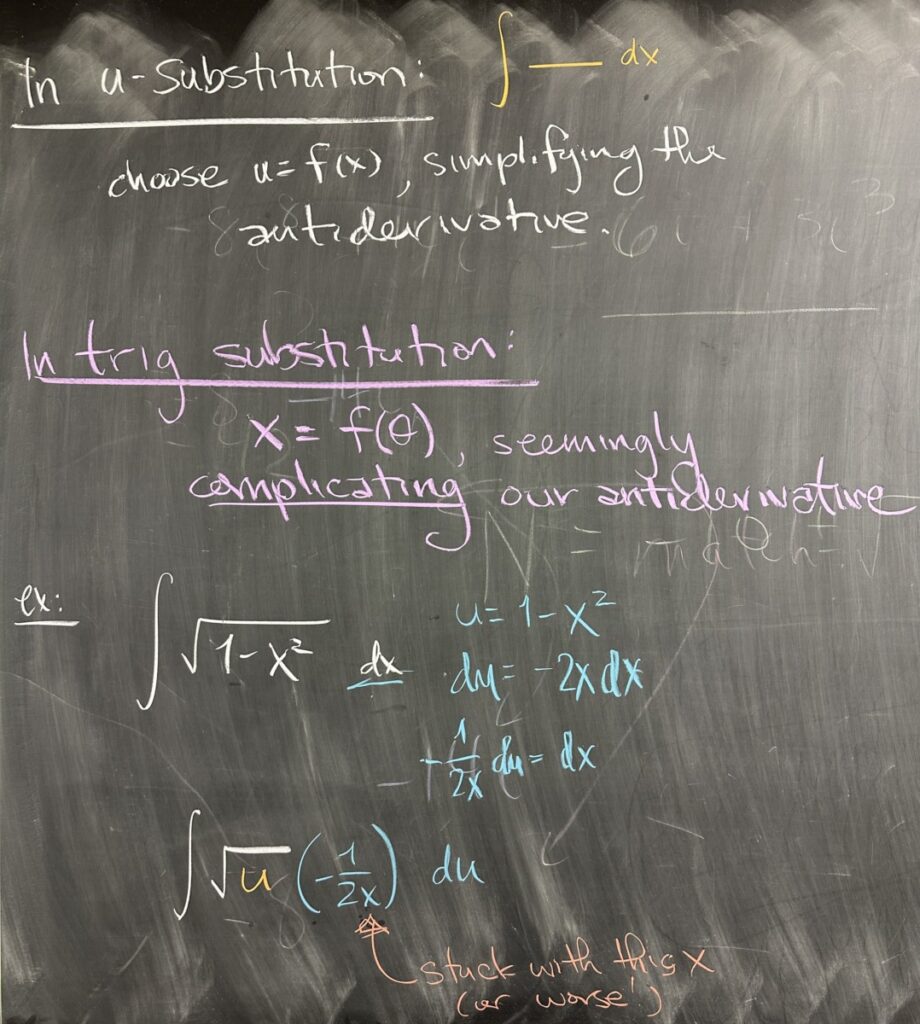 In u-substitution: ∫ ___ dx
choose u = f(x), simplifying the
antiderivative.
In trig substitution:
x = f(θ), seemingly
complicating our antiderivative
ex: ∫ √(1-x²) dx u = 1-x²
du = -2x dx
-1/(2x) du = dx
∫ √u (-1/(2x)) du
stuck with this x
(or worse!)